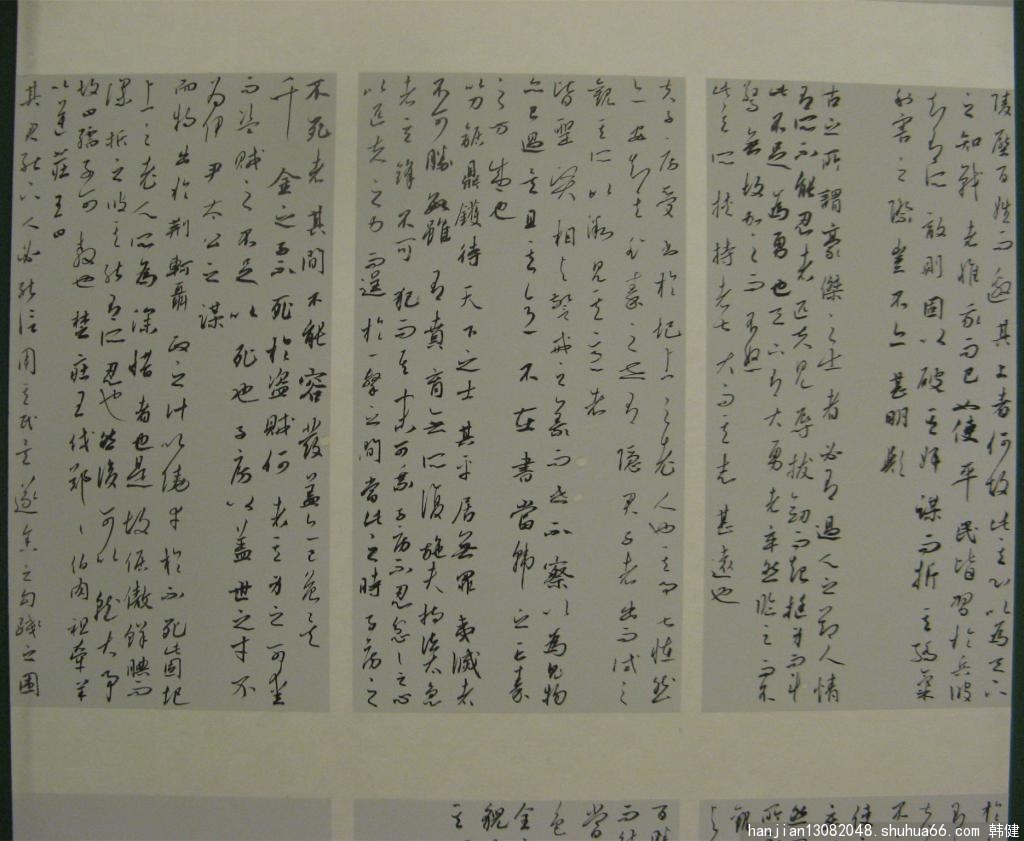 陵壓百姓而邀其上者何故此其心以為天下
之知戰者惟我而已如使平民皆習於兵彼
知有所敵則固以破其奸謀而折其驕氣
利害之際豈不亦甚明歟
古之所謂豪傑之士者必有過人之節人情
有所不能忍者匹夫見辱拔劍而起挺身而鬥
此不足為勇也天下有大勇者卒然臨之而不
驚無故加之而不怒
此其所挾持者甚大而其志甚遠也
夫子房受書於圯上之老人也其事甚怪然
亦安知其非秦之世有隱君子者出而試之
觀其所以微見其意者
皆聖賢相與警戒之義而世不察以為鬼物
亦已過矣且其意不在書當韓之亡秦
之方盛也
以刀鋸鼎鑊待天下之士其平居無罪夷滅者
不可勝數雖有賁育無所復施夫持法太急
者其鋒不可犯而其末可乘子房不忍忿〻之心
以匹夫之力而逞於一擊之間當此之時子房之
不死者其間不能容髮蓋亦已危矣
千金之子不死於盜賊何者其身之可愛
而盜賊之不足以死也子房以蓋世之才不
為伊尹太公之謀
而特出於荊軻聶政之計以僥倖於不死此固圯
上之老人所為深惜者也是故倨傲鮮腆而
深折之彼其能有所忍也然後可以就大事
故曰孺子可教也楚莊王伐鄭〻伯肉袒牽羊
以逆莊王曰
其君能下人必能信用其民矣遂舍之勾踐之困
hanjian13082048.shuhua66.com 韩健